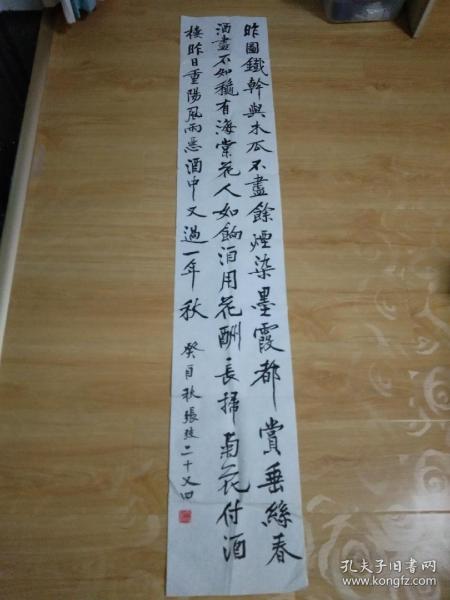 昨圖鐵幹與木瓜不盡餘煙染墨霞都賞垂絲春
酒盡不如穠有海棠花人如餉酒用花酬長掃菊花付酒
樓昨日重陽風雨惡酒中又過一年秋
癸酉秋張 二十又四
孔夫子旧书网
www.kongfz.com